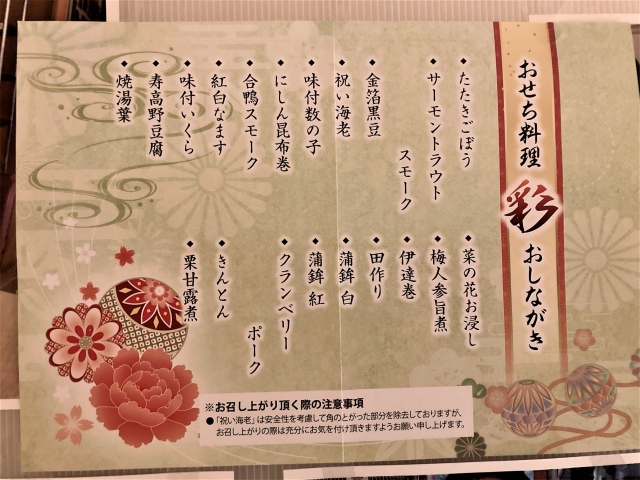 おせち料理 彩 おしながき
◆たたきごぼう
◆サーモントラウト
スモーク
◆金箔黒豆
◆祝い海老
◆味付数の子
◆にしん昆布巻
◆合鴨スモーク
◆紅白なます
◆味付いくら
◆寿高野豆腐
◆焼湯葉
◆菜の花お浸し
◆梅人参旨煮
◆伊達巻
◆田作り
◆蒲鉾 白
◆蒲鉾 紅
◆クランベリー
ポーク
◆きんとん
◆栗甘露煮
※お召し上がり頂く際の注意事項
●「祝い海老」は安全性を考慮して角のとがった部分を除去しておりますが、
お召し上がりの際は充分にお気を付け頂きますようお願い申し上げます。